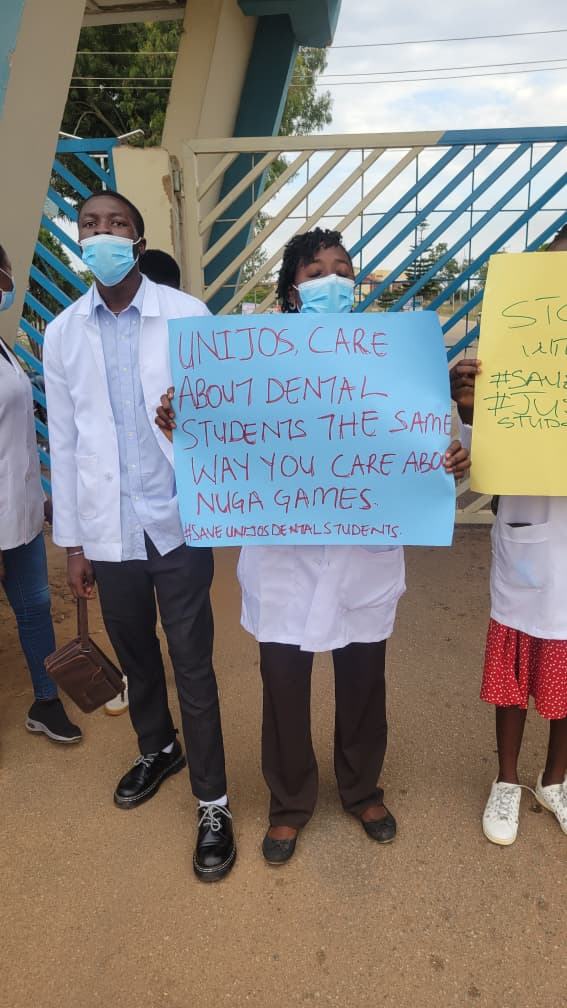 UNIJOS, CARE
ABOUT DENTAL
STUDENTS THE SAME
WAY YOU CARE ABO
NUGA GAMES.
#SAVEUNIJOSDENTALSTUDENTS.
STO
#SAVE
#JUS
STUD